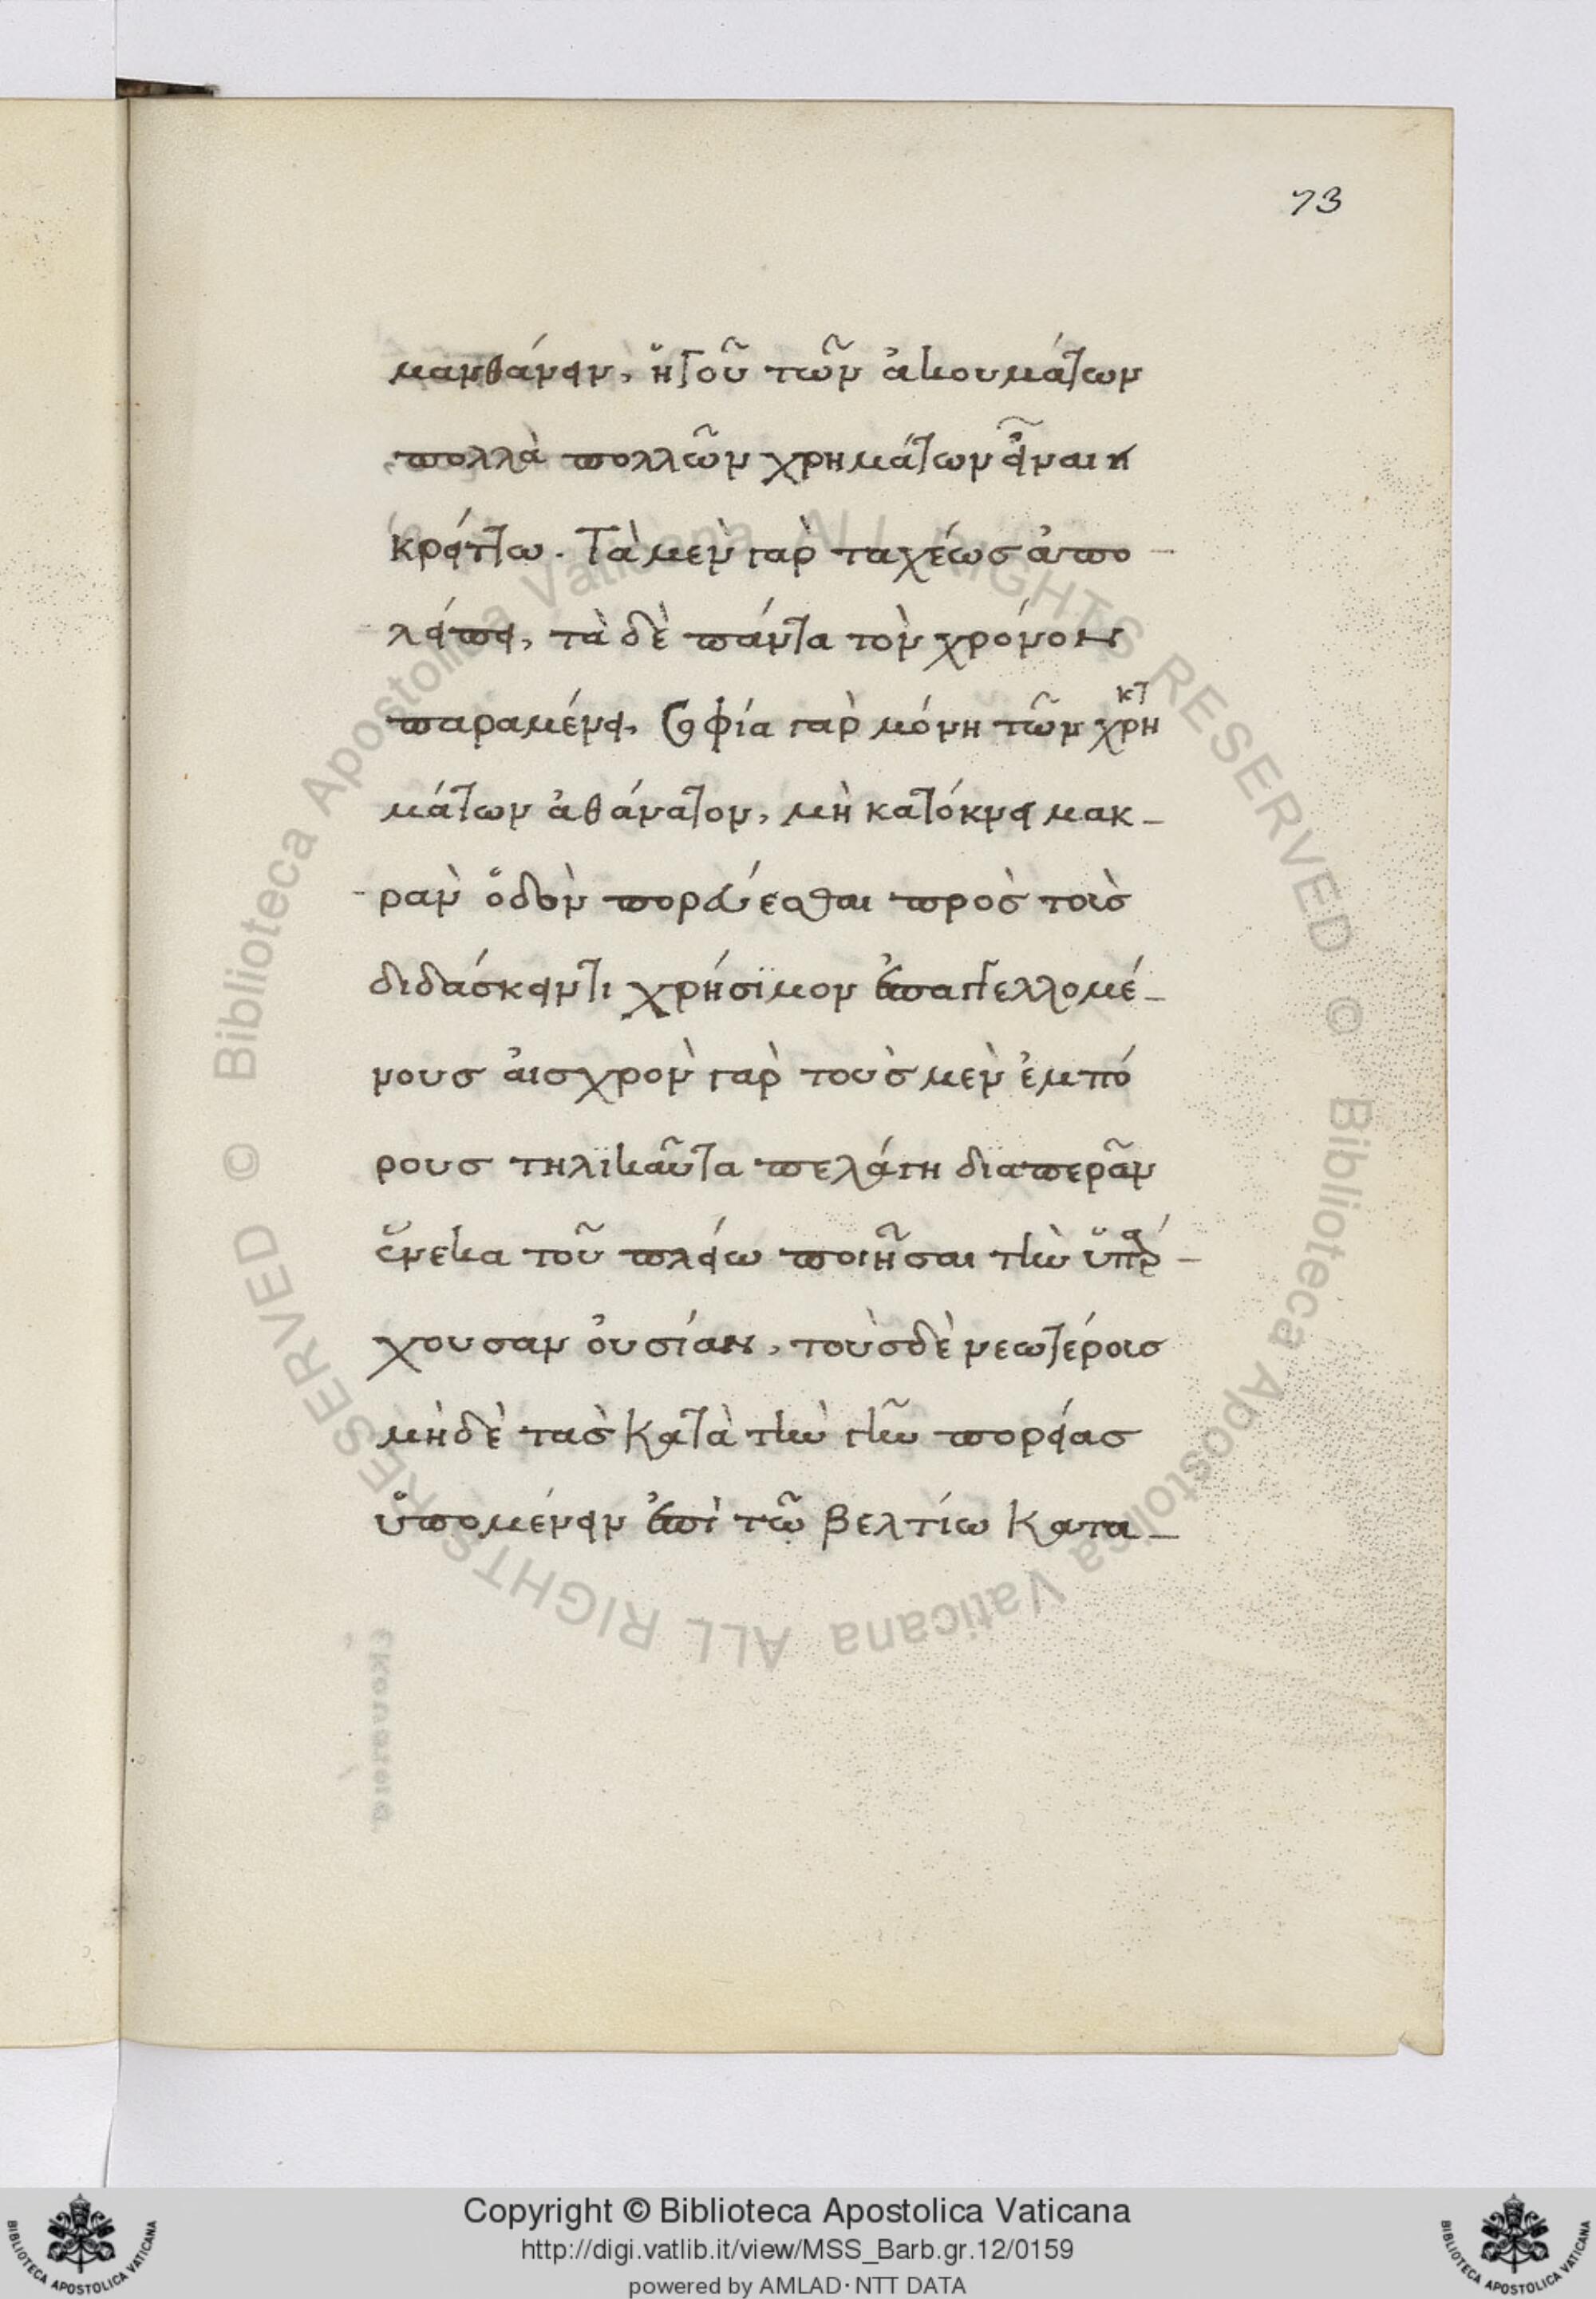 73
μανθάνειν, ἡγοῦ τῶν ἀκουμάτων
πολλὰ πολλῶν χρημάτων εἶναι κ
κρείττω. Τὰ μὲν γὰρ ταχέως ἀπο-
-λείπει, τὰ δὲ πάντα τὸν χρόνον
παραμένει, Σοφία γὰρ μόνη τῶν χρη
κτ
μάτων ἀθάνατον, μὴ κατόκνει μακ-
-ρὰν ὅδὸν πορεύεσθαι πρὸς τοὶς
διδάσκειντι χρήσϊμον ἐπαγγελλομέ-
νους ἀισχρὸν γὰρ τοὺς μὲν ἐμπό
ρους τηλϊκαῦτα πελάγη δϊαπερᾶν
ἕνεκα τοῦ πλείω ποιῆσαι τὴν ὕπάρ-
χουσαν ὀυσίαν, τοὺς δὲ νεωτέροις
μὴδὲ τὰς κατὰ τὴν γῆν πορείας
ὑπομένειν ἐπὶ τῶ βελτίω κατα-
Copyright © Biblioteca Apostolica Vaticana
http://digi.vatlib.it/view/MSS_Barb.gr.12/0159
powered by AMLAD·NTT DATA
© Biblioteca Apostolica Vaticana ALL RIGHTS RESERVED © Biblioteca Apostolica Vaticana ALL RIGHTS RESERVED
BIBLIOTECA APOSTOLICA VATICANA
BIBLIOTECA APOSTOLICA VATICANA